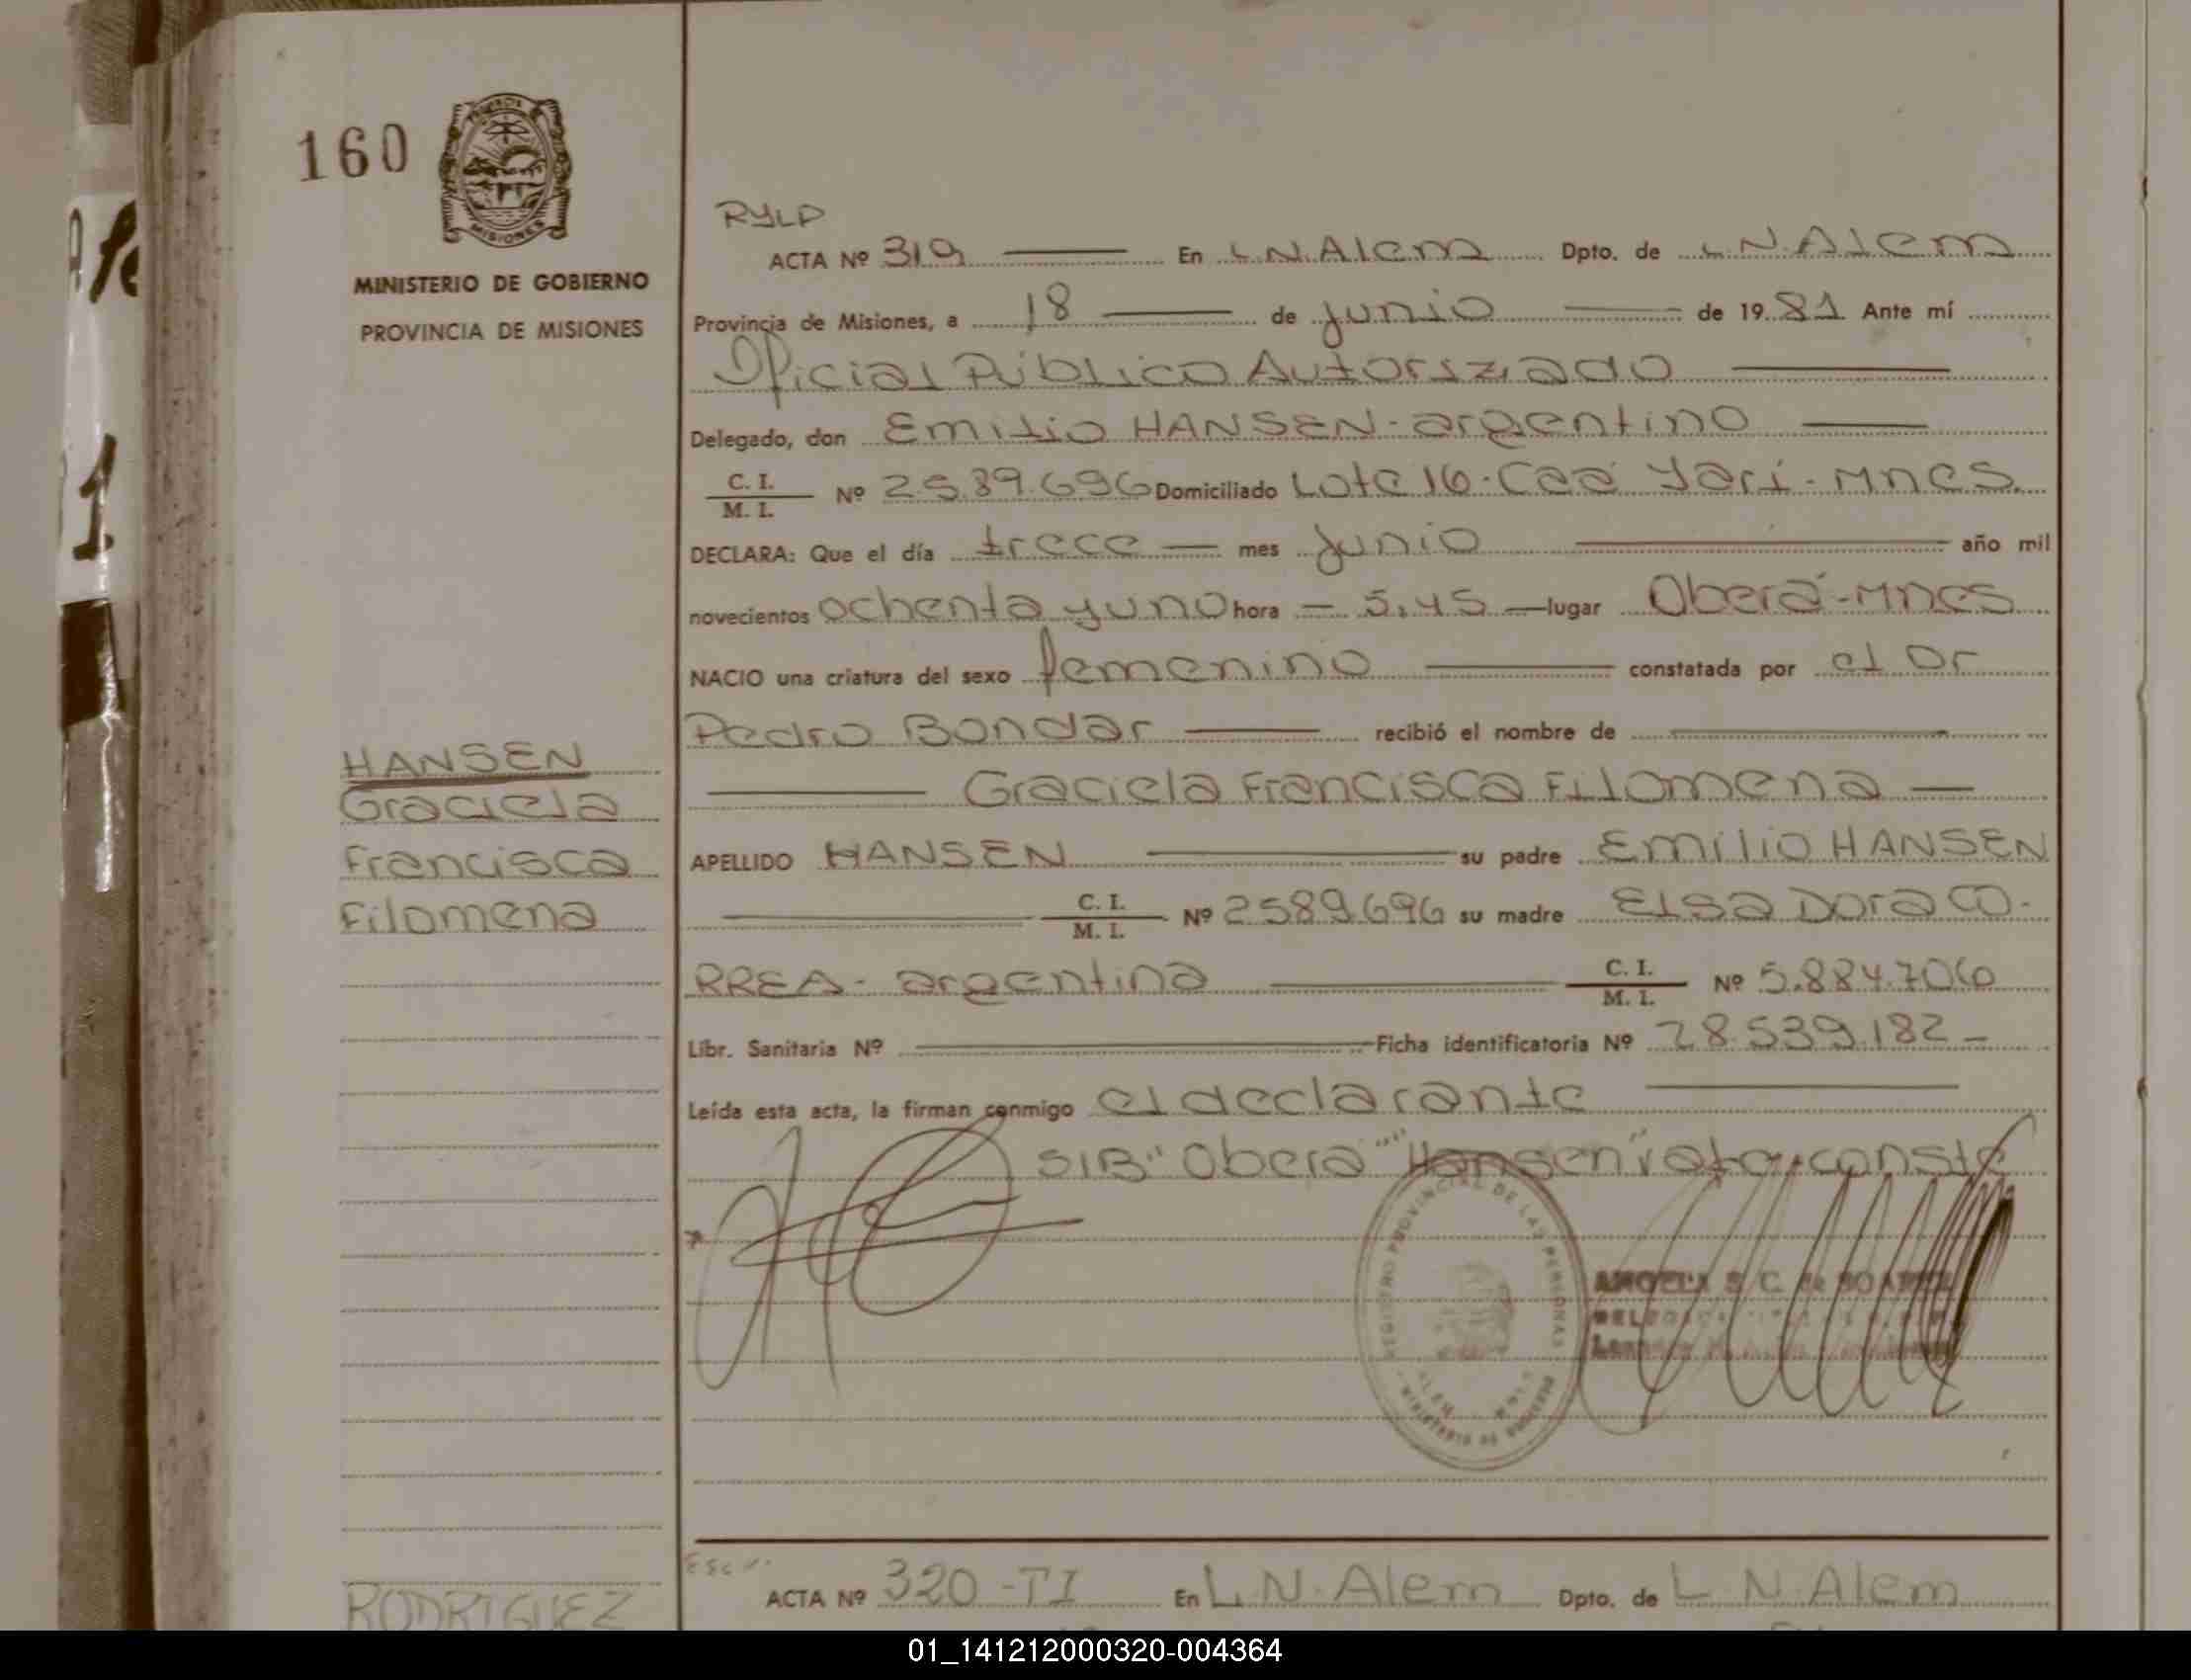 160
MISIONES
MINISTERIO DE GOBIERNO
PROVINCIA DE MISIONES
HANSEN
Graciela
Francisca
Filomena
RYLP
ACTA Nº 319 En L.N.Alem Dpto. de L.N.Alem
Provincia de Misiones, a 18 de junio de 1981 Ante mí
Oficial Público Autorizado
Delegado, don Emilio HANSEN-argentino
C. I. / M. I. Nº 2.589.696 Domiciliado Lote 16-Caá Yarí-Mnes.
DECLARA: Que el día trece mes junio año mil
novecientos ochenta y uno hora 5,45 lugar Oberá-Mnes
NACIO una criatura del sexo femenino constatada por el Dr
Pedro Bondar recibió el nombre de
Graciela Francisca Filomena
APELLIDO HANSEN su padre Emilio HANSEN
C. I. / M. I. Nº 2.589.696 su madre Elsa Dora CO-
RREA- argentina C. I. / M. I. Nº 5.884.706
Libr. Sanitaria Nº Ficha identificatoria Nº 28.539.182-
Leída esta acta, la firman conmigo el declarante
S/B "Oberá" "Hansen" vale. conste
REGISTRO PROVINCIAL DE LAS PERSONAS
MINISTERIO DE GOBIERNO
ANGELA S. C. de
ACTA Nº 320-TI En L.N.Alem Dpto. de L.N.Alem
RODRIGUEZ
01_141212000320-004364